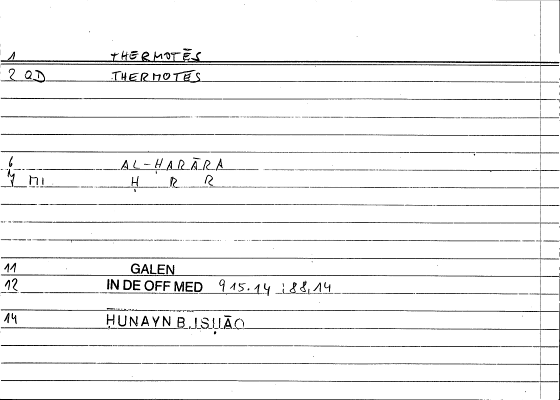 1 THERMOTĒS
2 QD THERMOTĒS
6 AL-ḤARĀRA
7 MI Ḥ R R
11 GALEN
12 IN DE OFF MED 915.14 :88,14
14 ḤUNAYN B. ISḤĀQ